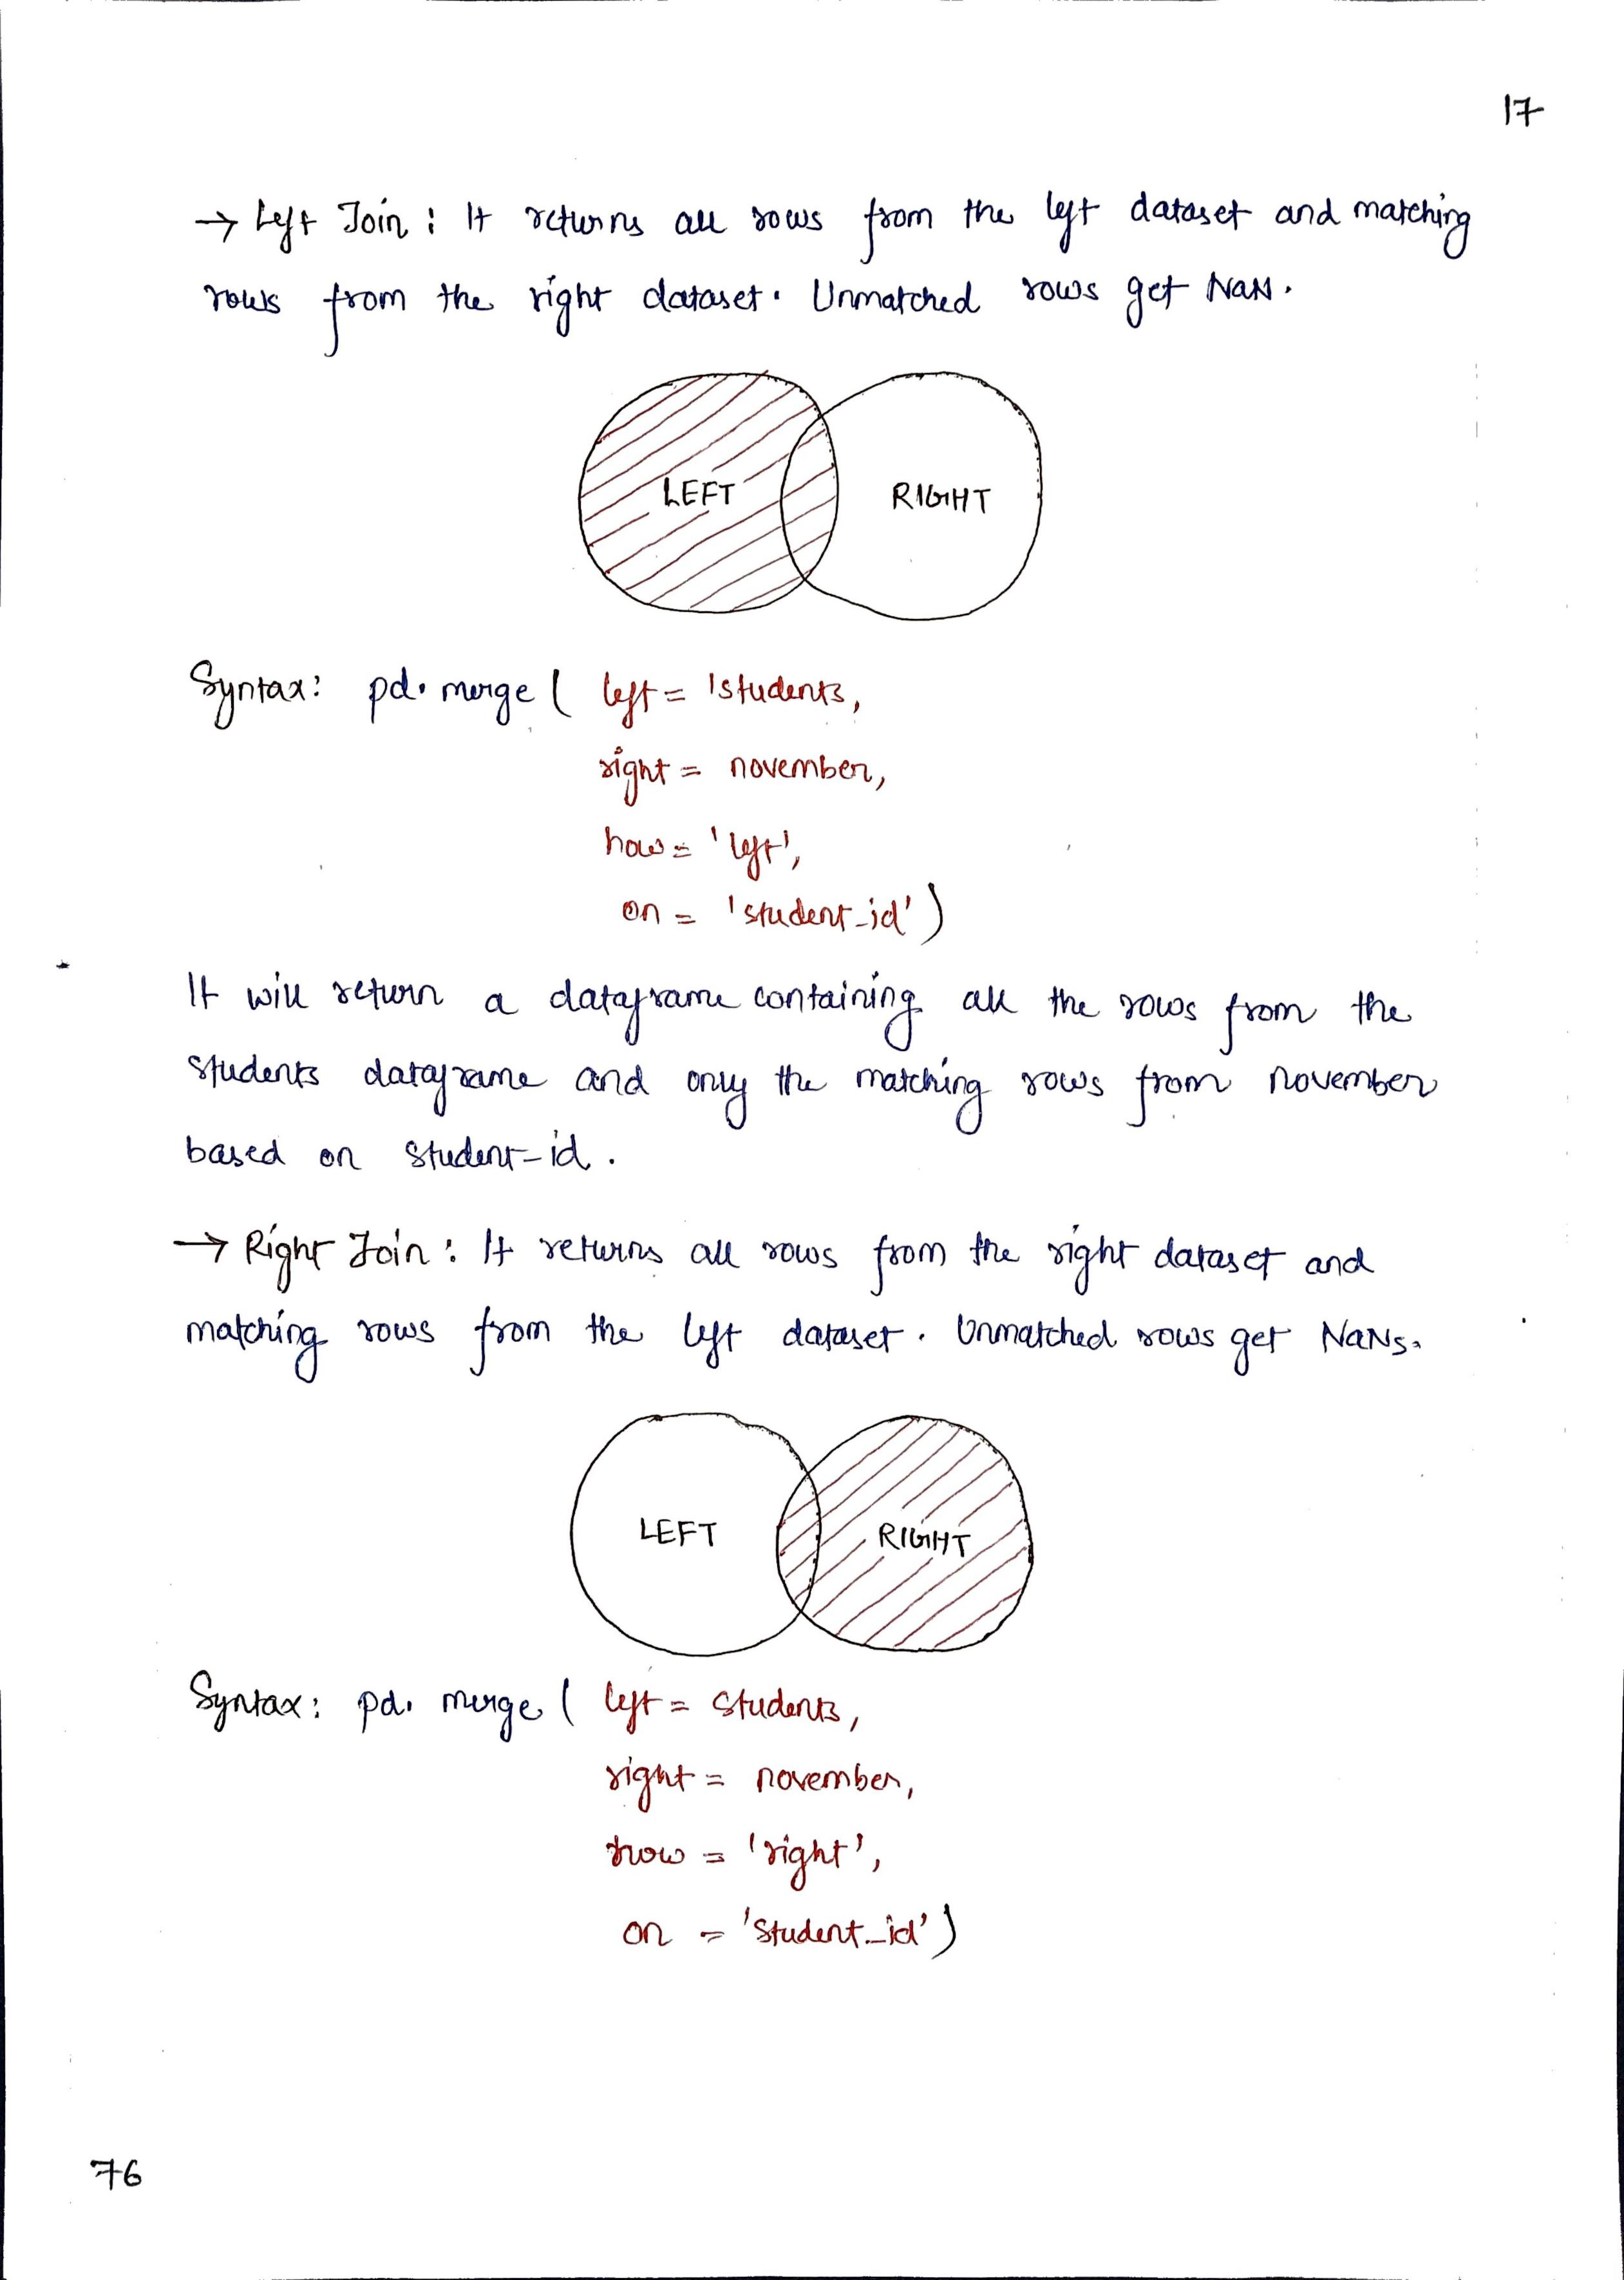 17
→ Left Join : It returns all rows from the left dataset and matching
rows from the right dataset. Unmatched rows get NaN.
LEFT RIGHT
Syntax: pd.merge( left = 'students,
right = november,
how = 'left',
on = 'student_id')
It will return a dataframe containing all the rows from the
students dataframe and only the matching rows from november
based on student_id.
→ Right Join : It returns all rows from the right dataset and
matching rows from the left dataset. Unmatched rows get NaNs.
LEFT RIGHT
Syntax: pd.merge( left = students,
right = november,
how = 'right',
on = 'student_id')
76